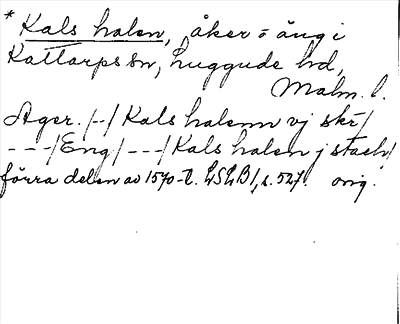 * Kals halen, åker o äng i
Kattarps sn, Luggude hd,
Malm. l.
Ager. /--/ Kals halenn vj skr/
---/ Eng /---/ Kals halen j stack/
förra delen av 1570-t. LSLB 1, s. 527. orig.